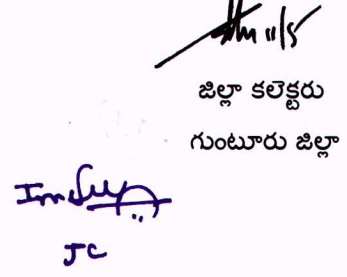 11/5
జిల్లా కలెక్టరు
గుంటూరు జిల్లా
JC